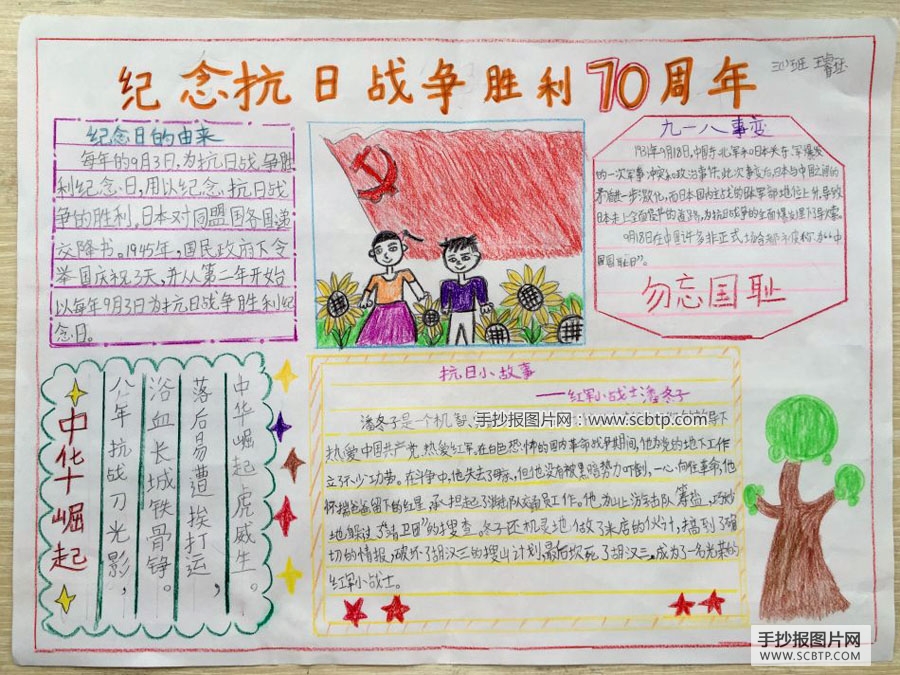 纪念抗日战争胜利70周年
纪念日的由来
每年的9月3日，为抗日战争胜
利纪念日，用以纪念抗日战
争的胜利。日本对同盟国各国递
交降书。1945年，国民政府下令
举国庆祝3天，并从第二年开始
以每年9月3日为抗日战争胜利纪
念日。
九一八事变
1931年9月18日，中国东北军和日本关东军爆发
的一次军事冲突和政治事件。此次事变后，日本与中国之间的
矛盾进一步激化，而日本国内主战的
勿忘国耻
中华崛起
中华崛起虎威生。
落后易遭挨打运，
浴血长城铁骨铮。
八年抗战刀光影，
抗日小故事
——红军小战士潘冬子
潘冬子是个机智、
热爱中国共产党，热爱红军。在白色恐怖的国内革命战争期间，他为党的地下工作
立下不少功劳。在斗争中，他失去了母亲，但他没有被黑暗势力吓倒，一心向往革命，他
怀揣爸爸留下的红星，承担起了游击队交通员工作。他为山上游击队筹盐，巧妙
地躲过
的搜查。冬子还机灵地做了米店的小伙计，搞到了确
切的情报，破坏了胡汉三的搜山计划，最后砍死了胡汉三，成为了一名光荣的
红军小战士。
手抄报图片网：www.scbtp.com
手抄报图片网
WWW.SCBTP.COM